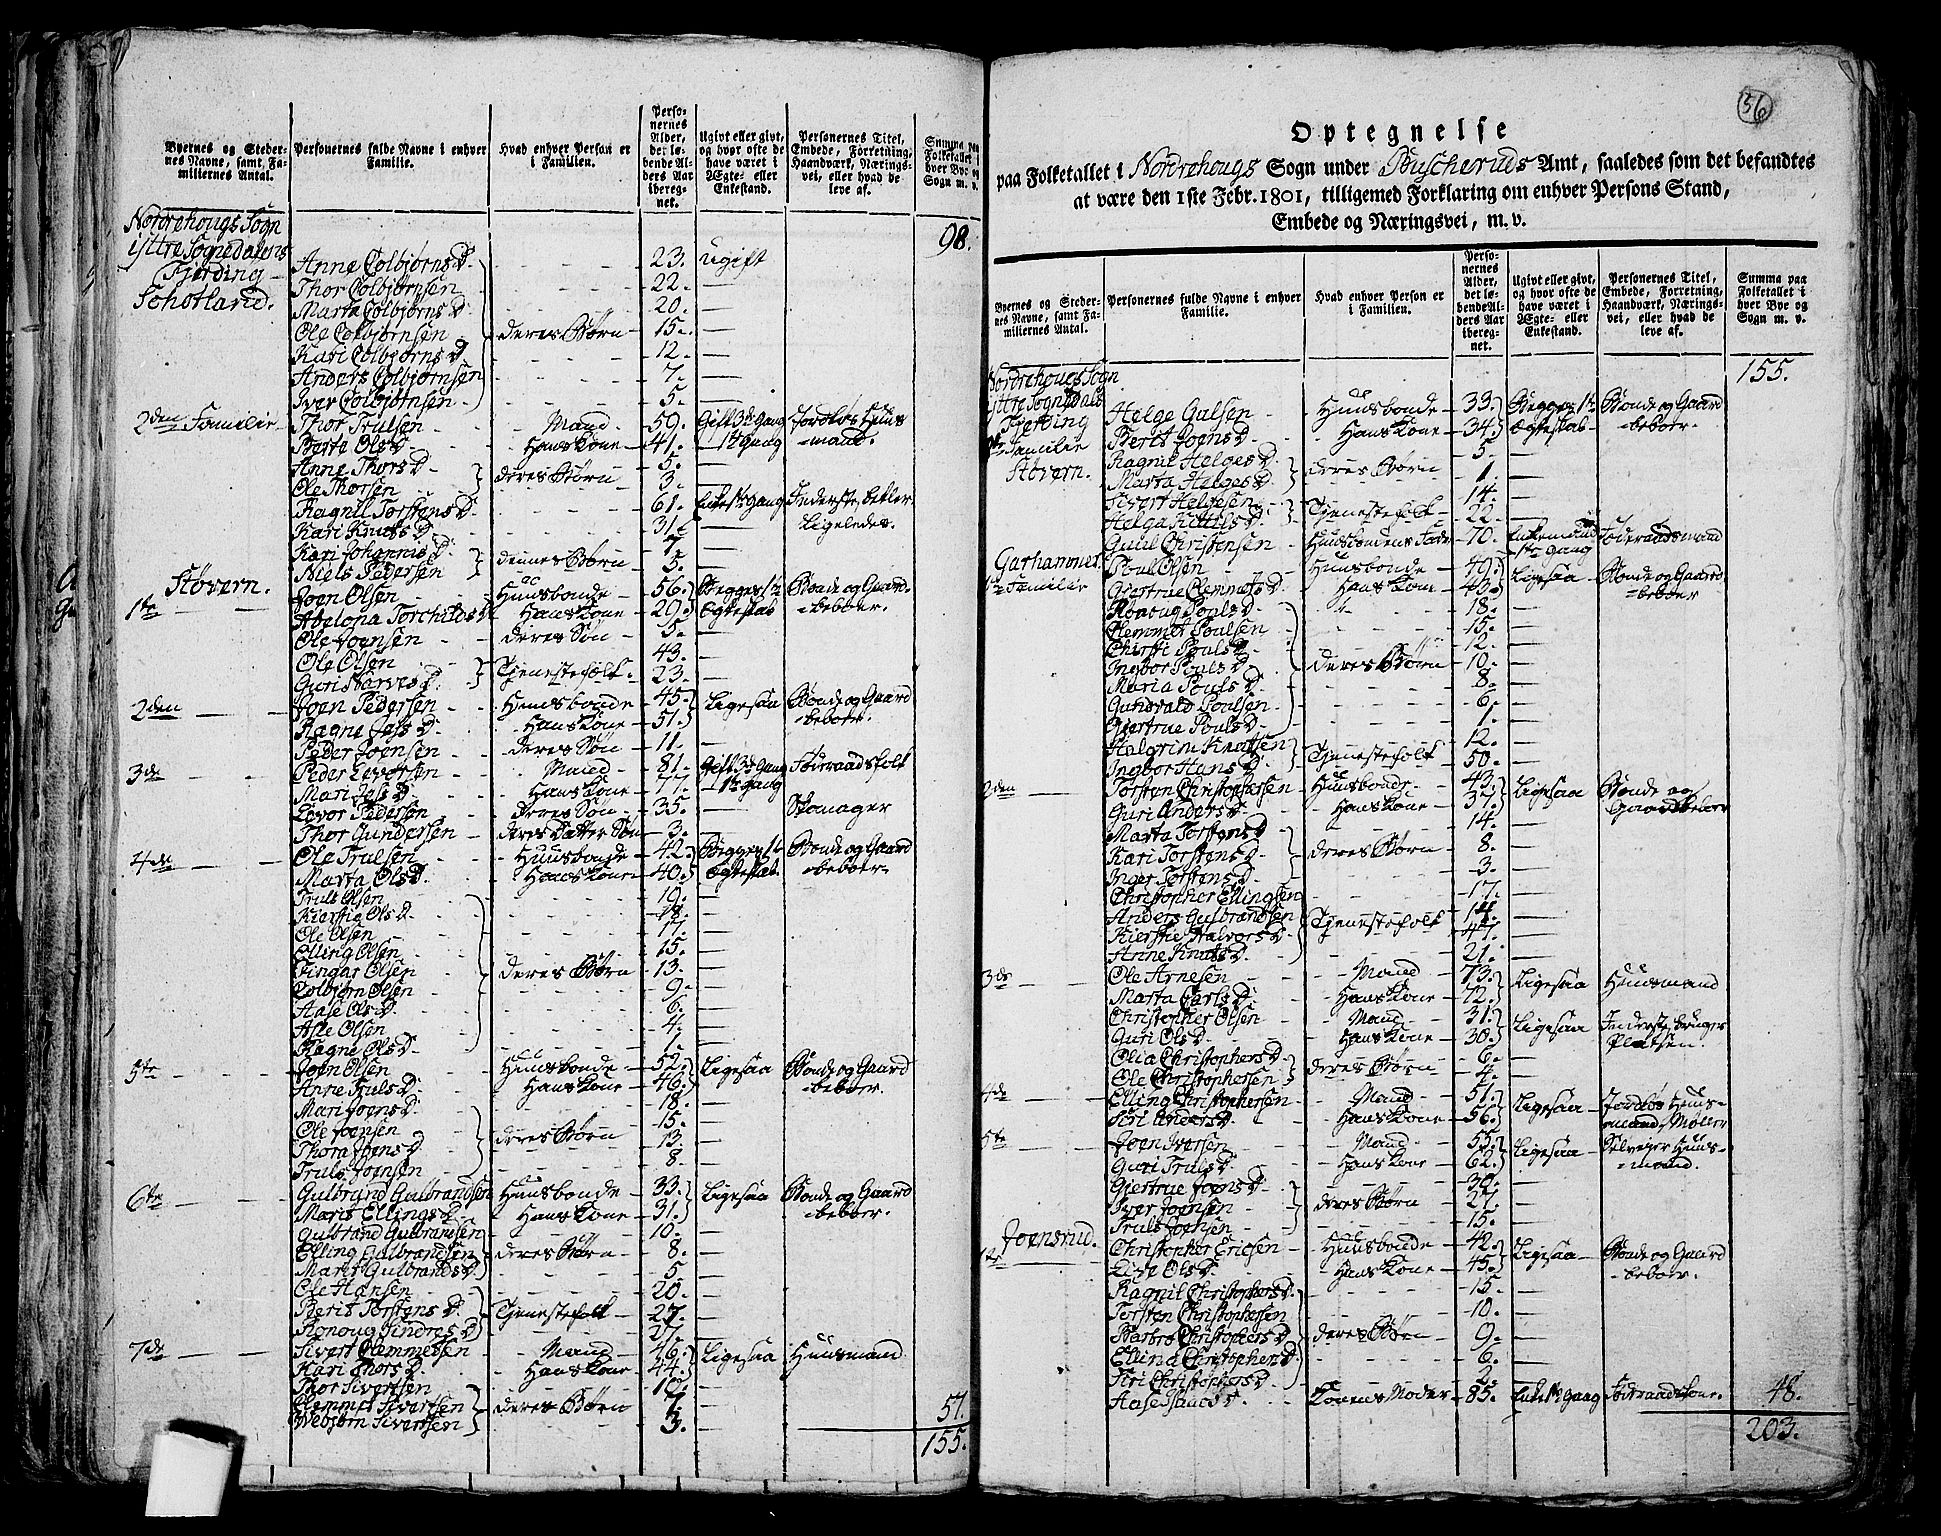 Byernes og Steder-
nes Navne, samt Fa-
miliernes Antal.
Personernes fulde Navne i enhver
Familie.
Hvad enhver Person er
i Familien.
Perso-
nernes
Alder,
det lø-
bende Al-
ders Aar
iberegn-
net.
Ugivt eller givt,
og hvor ofte de
have været i
Ægte- eller
Enkestand.
Personernes Titel,
Embede, Forretning,
Haandværk, Nærings-
vei, eller hvad de
leve af.
Summa paa
Folketallet i
hver Bye og
Sogn m. v.
Nordrehougs Sogn 98.
ÿttre Sognedalens
Fjerding
Schotland.
Anne Colbjørns D. 23. ugift
Thor Colbjørnsen 22. —
Marta Colbjørns D. 20. —
Ole Colbjørnsen deres Børn 15. —
Kari Colbjørns D. 12. —
Anders Colbjørnsen 7. —
Iver Colbjørnsen 5. —
2den Familie Thor Trulsen Mand 59. Gift 3de Gang Jordløs Huus
Berte Ols D. Hans Kone 41. 1te Gang mand.
Anne Thors D. 5. —
Ole Thorsen deres Børn 3. —
Ragnil Torstens D. 61. Enke 1te Gang Inderste, betler
Kari Knuts D. 31. — Ligeledes.
Kari Johannis D. 7. —
Niels Pedersen dennes Børn 3. —
Støvern.
1te Joen Olsen Huusbonde 56. Begge 1te Bonde og Gaard
Abelona Torchilds D. Hans Kone 29. Ægteskab beboer.
Ole Joensen deres Søn 5. —
Ole Olsen 43. —
Guri Narves D. Tjenestefolk 23. —
2den Joen Pedersen Huusbonde 45. Ligesaa Bonde og Gaard
Ragne Joss D. Hans Kone 51. beboer.
Peder Joensen deres Søn 11. —
3de Peder Levorsen Mand 81. Gift 3de Gang Føderaadsfolk
Mari Joss D. Hans Kone 77. 1te Gang
Levor Pedersen deres Søn 35. — Skomager
Thor Gundersen deres Datter Søn 3. —
4de Ole Trulsen Huusbonde 42. Begge 1te Bonde og Gaard
Marta Ols D. Hans Kone 40. Ægteskab beboer
Truls Olsen 19. —
Kierstie Ols D. 18. —
Ole Olsen 17. —
Elling Olsen 15. —
Fingar Olsen deres Børn 13. —
Colbjørn Olsen 9. —
Aase Ols D. 6. —
Asle Olsen 4. —
Ragne Ols D. 1. —
5te Joen Olsen Huusbonde 52. Ligesaa Bonde og Gaard
Anne Truls D. Hans Kone 46. beboer.
Mari Joens D. 18. —
Ole Joensen 15. —
Thora Joens D. deres Børn 13. —
Truls Joensen 8. —
6te Gulbrand Gulbrandsen Huusbonde 33. Ligesaa Bonde og Gaard
Marit Ellings D. Hans Kone 31. beboer.
Gulbrand Gulbrandsen 10. —
Elling Gulbrandsen deres Børn 8. —
Marit Gulbrands D. 5 —
Ole Hansen 20. —
Berit Torstens D. Tjenestefolk 27. —
Ronoug Sindres D. 27. —
7de Sivert Clemmetsen Mand 46. Ligesaa Huusmand
Kari Thors D. Hans Kone 44.
Thor Sivertsen 10. —
Clemmet Sivertsen deres Børn 7. —
Webjørn Sivertsen 3. —
57.
155.
56
Optegnelse
paa Folketallet i Nordrehougs Sogn under Buscheruds Amt, saaledes som det befandtes
at være den 1ste Febr. 1801, tilligemed Forklaring om enhver Persons Stand,
Embede og Næringsvei, m. v.
Byernes og Steder-
nes Navne, samt Fa-
miliernes Antal.
Personernes fulde Navne i enhver
Familie.
Hvad enhver Person er
i Familien.
Perso-
nernes
Alder,
det lø-
bende Al-
ders Aar
ibereg-
net.
Ugivt eller givt,
og hvor ofte de
have været i
Ægte- eller
Enkestand.
Personernes Titel,
Embede, Forretning,
Haandværk, Nærings-
vei, eller hvad de
leve af.
Summa paa
Folketallet i
hver Bye og
Sogn m. v.
Nordrehougs Sogn 155.
ÿttre Sognedals
Fjerding
Familie
Støvern.
Helge Gulsen Huusbonde 33. Begge 1te Bonde og Gaard
Berit Joens D. Hans Kone 34. Ægteskab beboer.
Ragnil Helges D. 5 —
Marta Helges D. deres Børn 1. —
Sivert Helgesen 14. —
Helga Kittils D. Tjenestefolk 22. —
Guul Christensen Huusbondens Fader 70. Enkemand Føderaadsmand
1te Gang
Garhammer.
1te Familie Poul Olsen Huusbonde 49. Ligesaa Bonde og Gaard
Gjertrue Clemmets D. Hans Kone 43. beboer
Ronoug Pouls D. 18. —
Clemmet Poulsen 15. —
Chirsti Pouls D. 12. —
Ingbor Pouls D. deres Børn 10. —
Maria Pouls D. 8. —
Gundvald Poulsen 6. —
Gjertrue Pouls D. 1. —
Halgrim Knutsen 12. —
Ingbor Hans D. Tjenestefolk 50. —
2den Torsten Christophersen Huusbonde 43. Ligesaa Bonde og
Guri Anders D. Hans Kone 37. Gaardbeboer
Marta Torstens D. 14. —
Kari Torstens D. deres Børn 8. —
Inger Torstens D. 3. —
Christopher Ellingsen 17. —
Anders Gulbrandsen Tjenestefolk 14. —
Kierstie Halvors D. 47. —
Anne Knuts D. 21. —
3de Ole Arnesen Mand 73. Ligesaa Huusmand
Marta Carls D. Hans Kone 72.
Christopher Olsen Mand 31. Ligesaa Inderste, bruger
Guri Ols D. Hans Kone 30. Platsen.
Olia Christophers D. 6. —
Ole Christophersen deres Børn 4. —
4de Elling Christophersen Mand 51. Ligesaa Jordløs Huus-
Siri Anders D. Hans Kone 56. mand, Møller
5te Joen Iversen Mand 55. Ligesaa Selveier Huus-
Guri Truls D. Hans Kone 62. mand.
Gjertrue Joens D. 30. —
Iver Joensen deres Børn 27. —
Truls Joensen 15. —
Joensrud.
1te Christopher Ericsen Huusbonde 42. Ligesaa Bonde og Gaard
Live Ols D. Hans Kone 45. beboer.
Ragnil Christophers D. 15 —
Torsten Christophersen 10. —
Barbro Christophers D. deres Børn 9. —
Ellina Christophers D. 6. —
Siri Christophers D. 2. —
Aase Isaacs D. Konens Moder 85. Enke 1te Gang Føderaadskone. 48.
203.